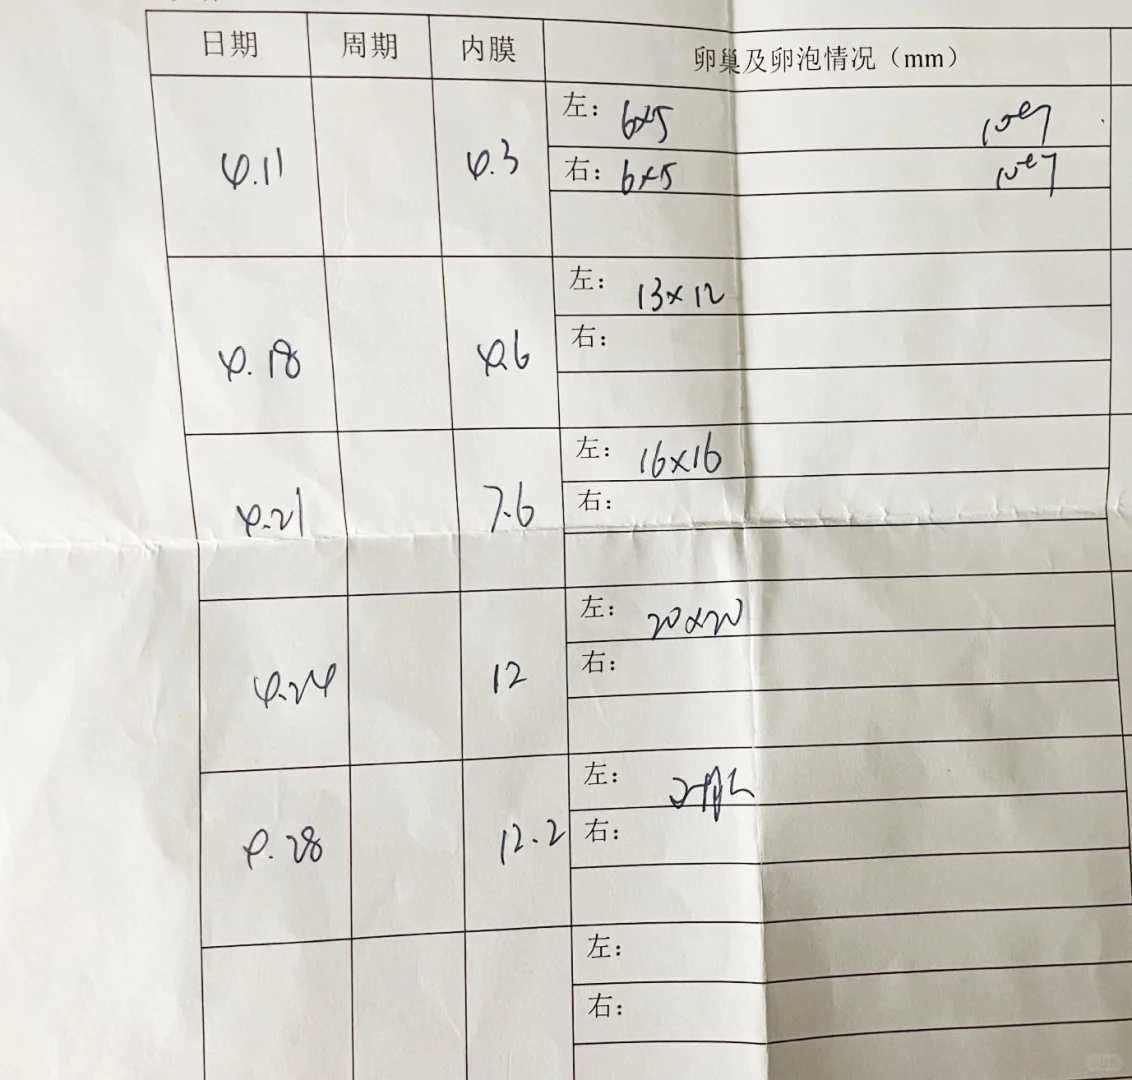 日期 周期 内膜 卵巢及卵泡情况（mm）
4.11 4.3 左：6×5
右：6×5
4.18 4.6 左：13×12
右：
4.21 7.6 左：16×16
右：
4.24 12 左：20×20
右：
4.28 12.2 左：已排
右：
左：
右：